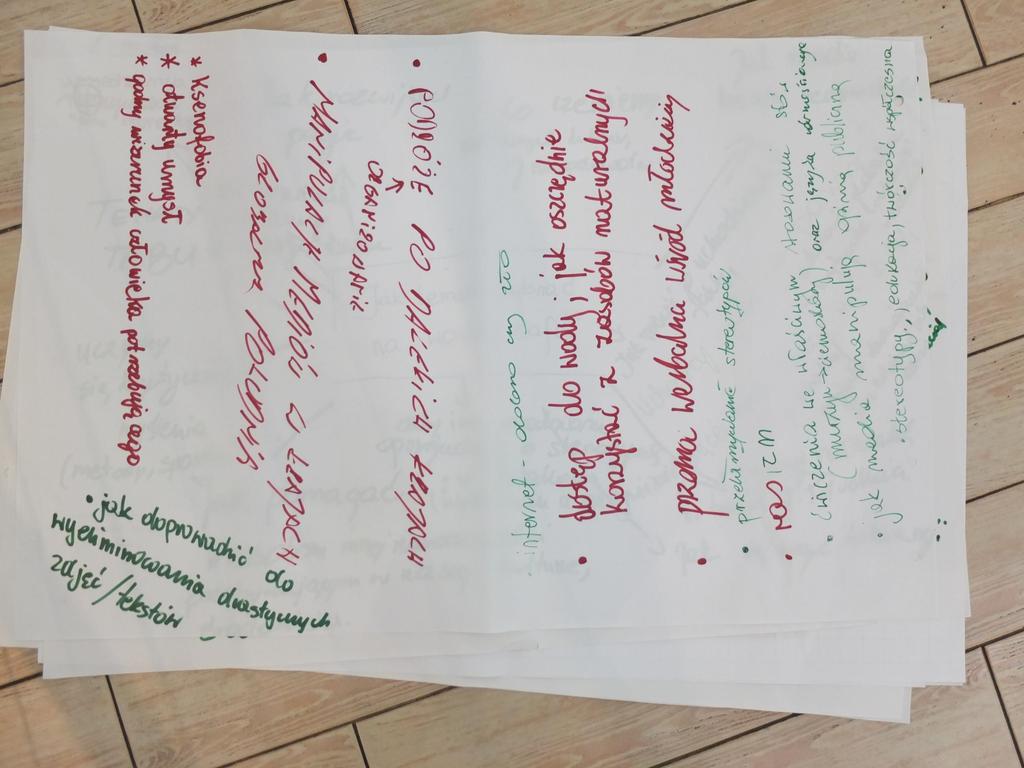 internet - dobro czy zło
• dostęp do wody, jak oszczędnie
korzystać z zasobów naturalnych
• przemoc werbalna wśród młodzieży
• przełamywanie stereotypów
• rasizm
• ćwiczenia we właściwym stosowaniu słów
(murzyn → ciemnoskóry) oraz języka
• jak media manipulują opinią publiczną
• stereotypy, edukacja, twórczość współczesna
• PODRÓŻE PO DALEKICH KRAJACH
• MANIPULACJA MEDIÓW O KRAJACH
* Ksenofobia
* otwarty umysł
* godny wizerunek człowieka potrzebującego
• jak doprowadzić do
wyeliminowania drastycznych
zdjęć/tekstów